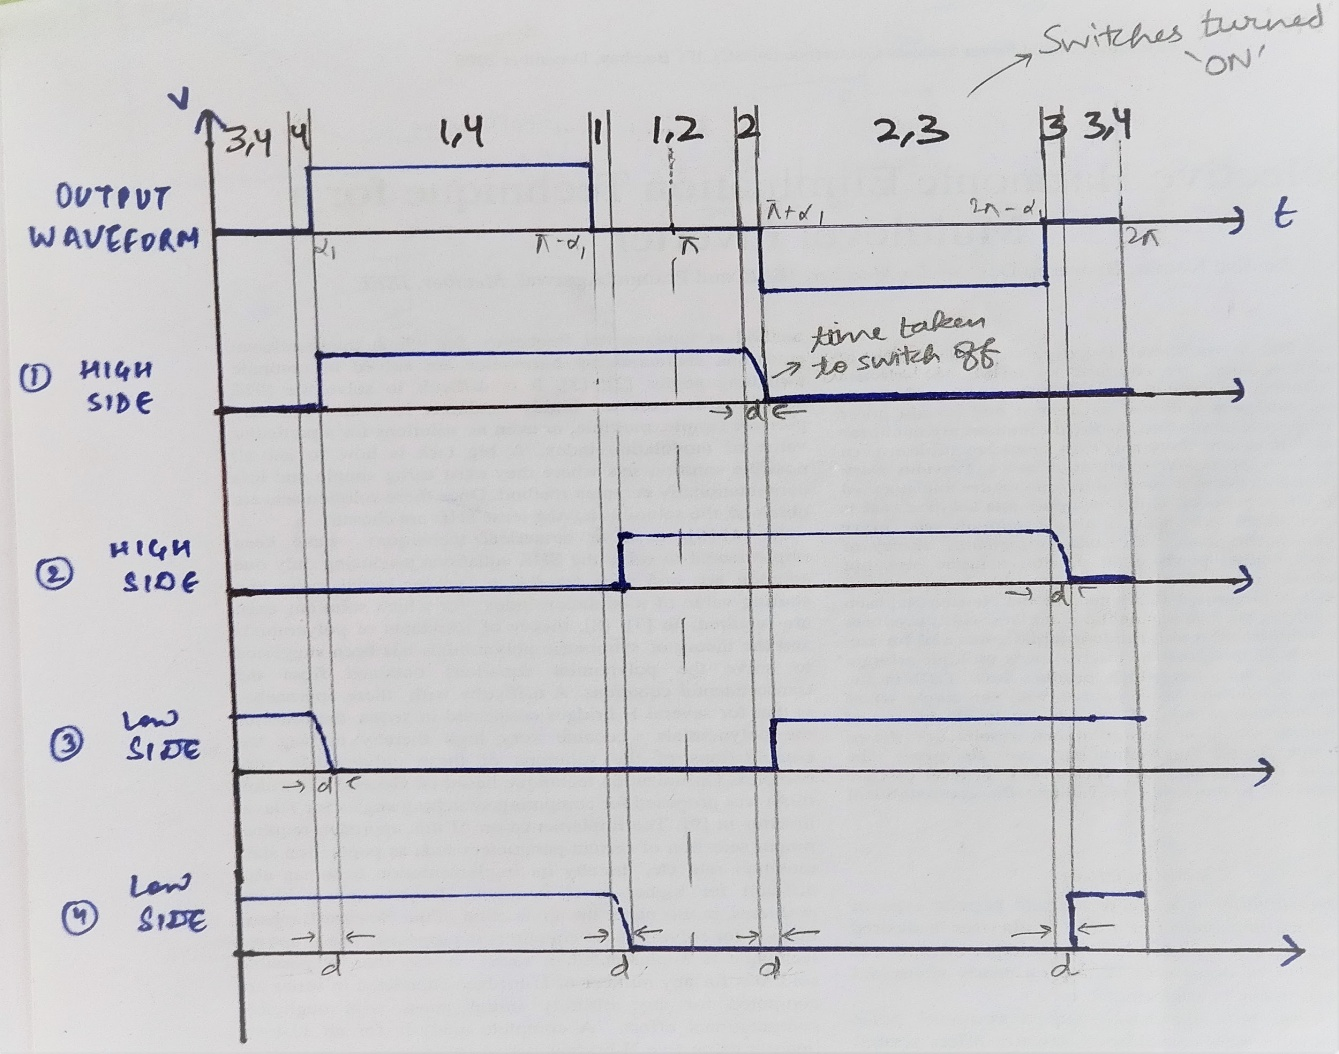 Switches turned
'ON'
V
3,4 4 1,4 1 1,2 2 2,3 3 3,4
OUTPUT
WAVEFORM
α₁ π-α₁ π π+α₁ 2π-α₁ 2π t
time taken
to switch off
① HIGH
SIDE
d
② HIGH
SIDE
d
③ LOW
SIDE
d
④ LOW
SIDE
d d d d